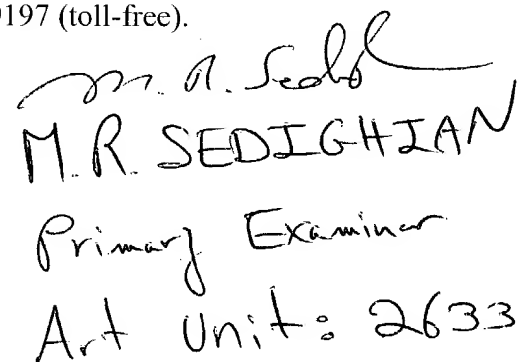 9197 (toll-free).
M. R. Sedi
M.R. SEDIGHIAN
Primary Examiner
Art Unit: 2633